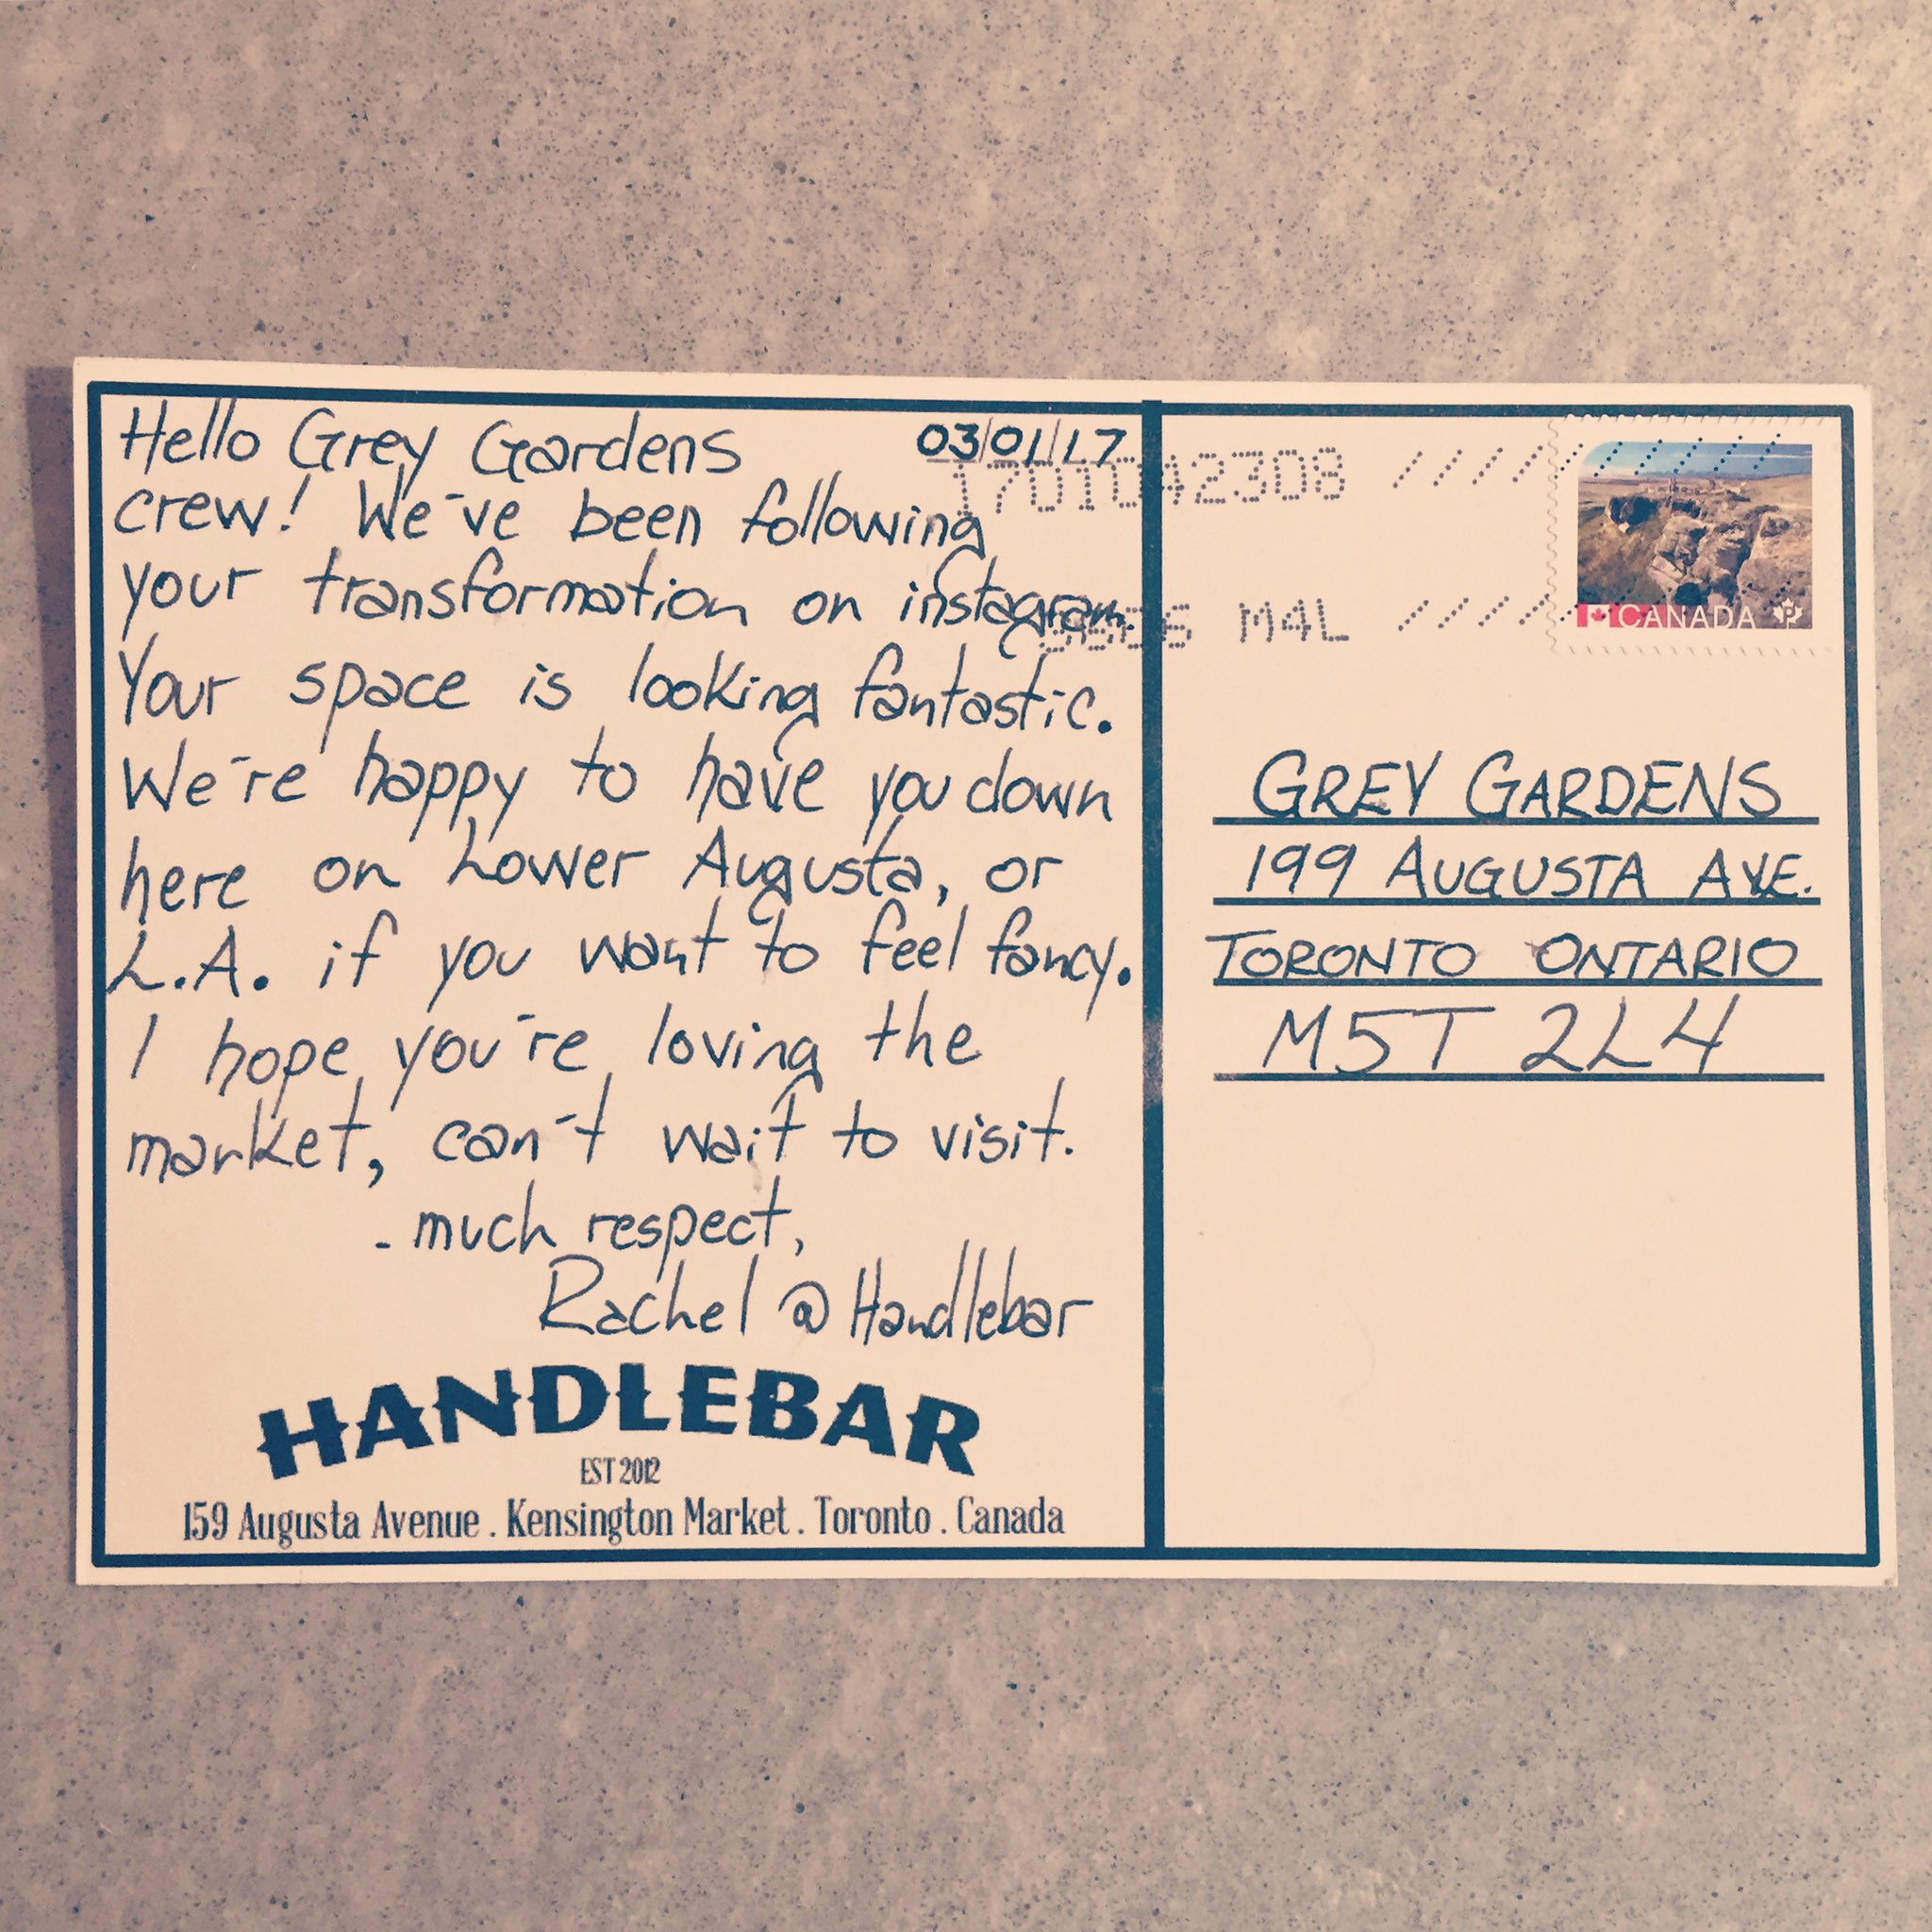 Hello Grey Gardens 03/01/17
crew! We've been following
your transformation on instagram.
Your space is looking fantastic.
We're happy to have you down
here on Lower Augusta, or
L.A. if you want to feel fancy.
I hope you're loving the
market, can't wait to visit.
- much respect,
Rachel @ Handlebar
HANDLEBAR
EST 2012
159 Augusta Avenue . Kensington Market . Toronto . Canada
M4L
CANADA P
GREY GARDENS
199 AUGUSTA AVE.
TORONTO ONTARIO
M5T 2L4